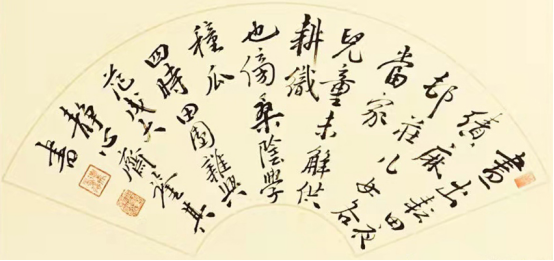 晝出耘田夜
績麻
村莊兒女各
當家
兒童未解供
耕織
也傍桑陰學
種瓜
四時田園雜興
范成大齋其
靜心
書